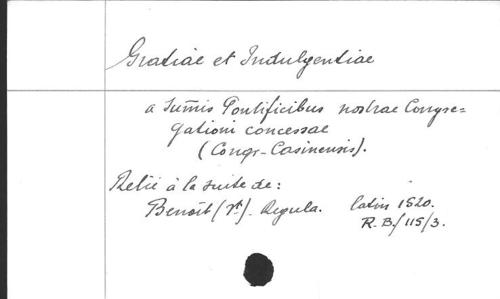 Gratiae et Indulgentiae
a sum̃is Pontificibus nostrae Congre=
gationi concessae
(Congr-Casinensis).
Relié à la suite de:
Benoît (St.) Regula. latin 1520.
R.B./115/3.